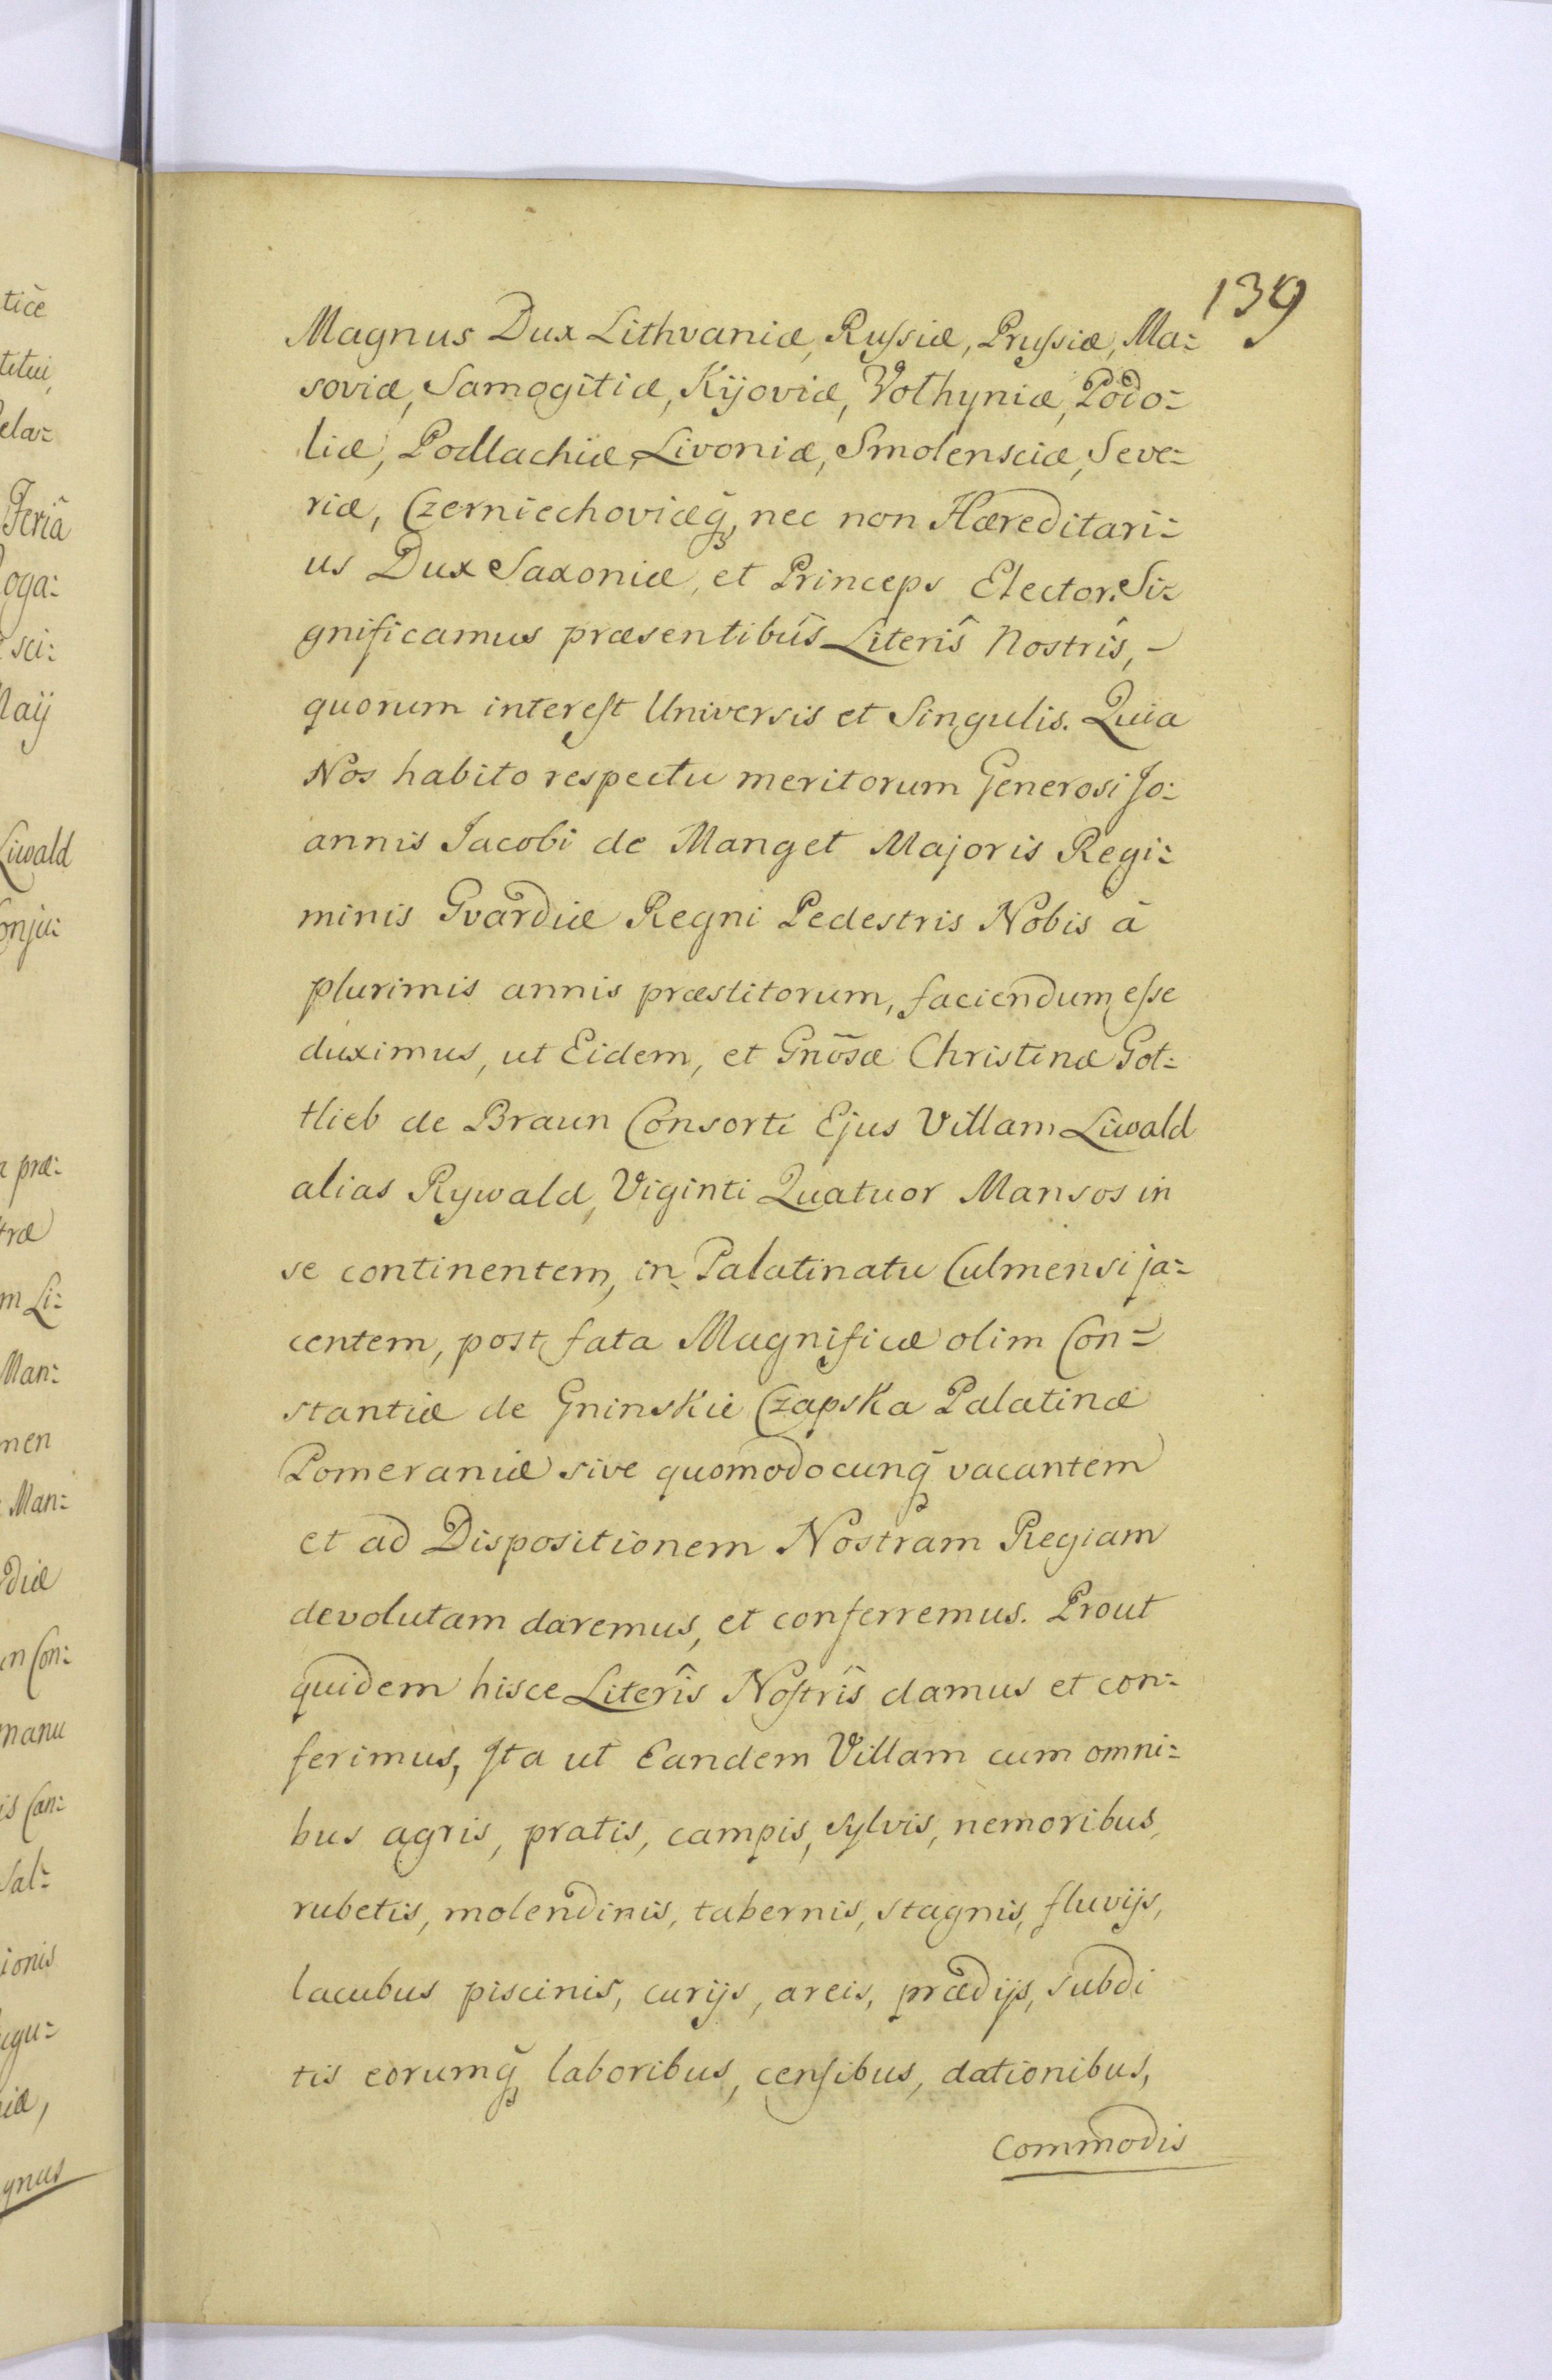 139
Magnus Dux Lithvaniæ, Ruſsiæ, Pruſsiæ, Ma=
soviæ, Samogitiæ, Kijoviæ, Volhyniæ, Podo=
liæ, Podlachiæ, Livoniæ, Smolensciæ, Seve=
riæ, Czerniechoviæq̃, nec non Hæreditari=
us Dux Saxoniæ, et Princeps Elector. Si=
gnificamus præsentibûs Literîs Nostrîs, -
quorum intereſt Universis et Singulis. Quia
Nos habito respectu meritorum Generosi Jo=
annis Jacobi de Manget Majoris Regi=
minis Gvardiæ Regni Pedestris Nobis à
plurimis annis præstitorum, faciendum eſse
duximus, ut Eidem, et Gnõsæ Christinæ Got=
tlieb de Braun Consorti Ejus Villam Liwald
alias Rywald, Viginti Quatuor Mansos in
se continentem, in Palatinatu Culmensi ja=
centem, post fata Magnificæ olim Con=
stantiæ de Gninskie Czapska Palatinæ
Pomeraniæ sive quomodocunq̃ vacantem
et ad Dispositionem Nostram Regiam
devolutam daremus, et conferremus. Prout
quidem hisce Literîs Noſtrîs damus et con=
ferimus, Ita ut Eandem Villam cum omni=
bus agris, pratis, campis, sylvis, nemoribus,
rubetis, molendinis, tabernis, stagnis, fluvijs,
lacubus piscinis, curijs, areis, prædijs, subdi
tis eorumq̃ laboribus, cenſibus, dationibus,
Commodis
tiče
titui,
elar=
Feriâ
oga=
sci=
Maij
Liwald
Conju=
præ=
træ
m Li=
Man=
men
Man=
diæ
n Con=
manu
is Can=
Sal=
ionis
gu=
iæ,
gnus